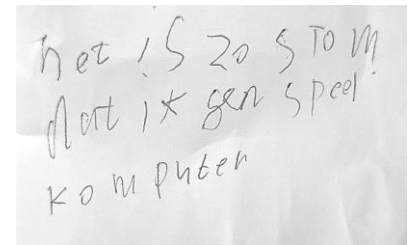 het is zo stom
dat ik gen speel
komputer